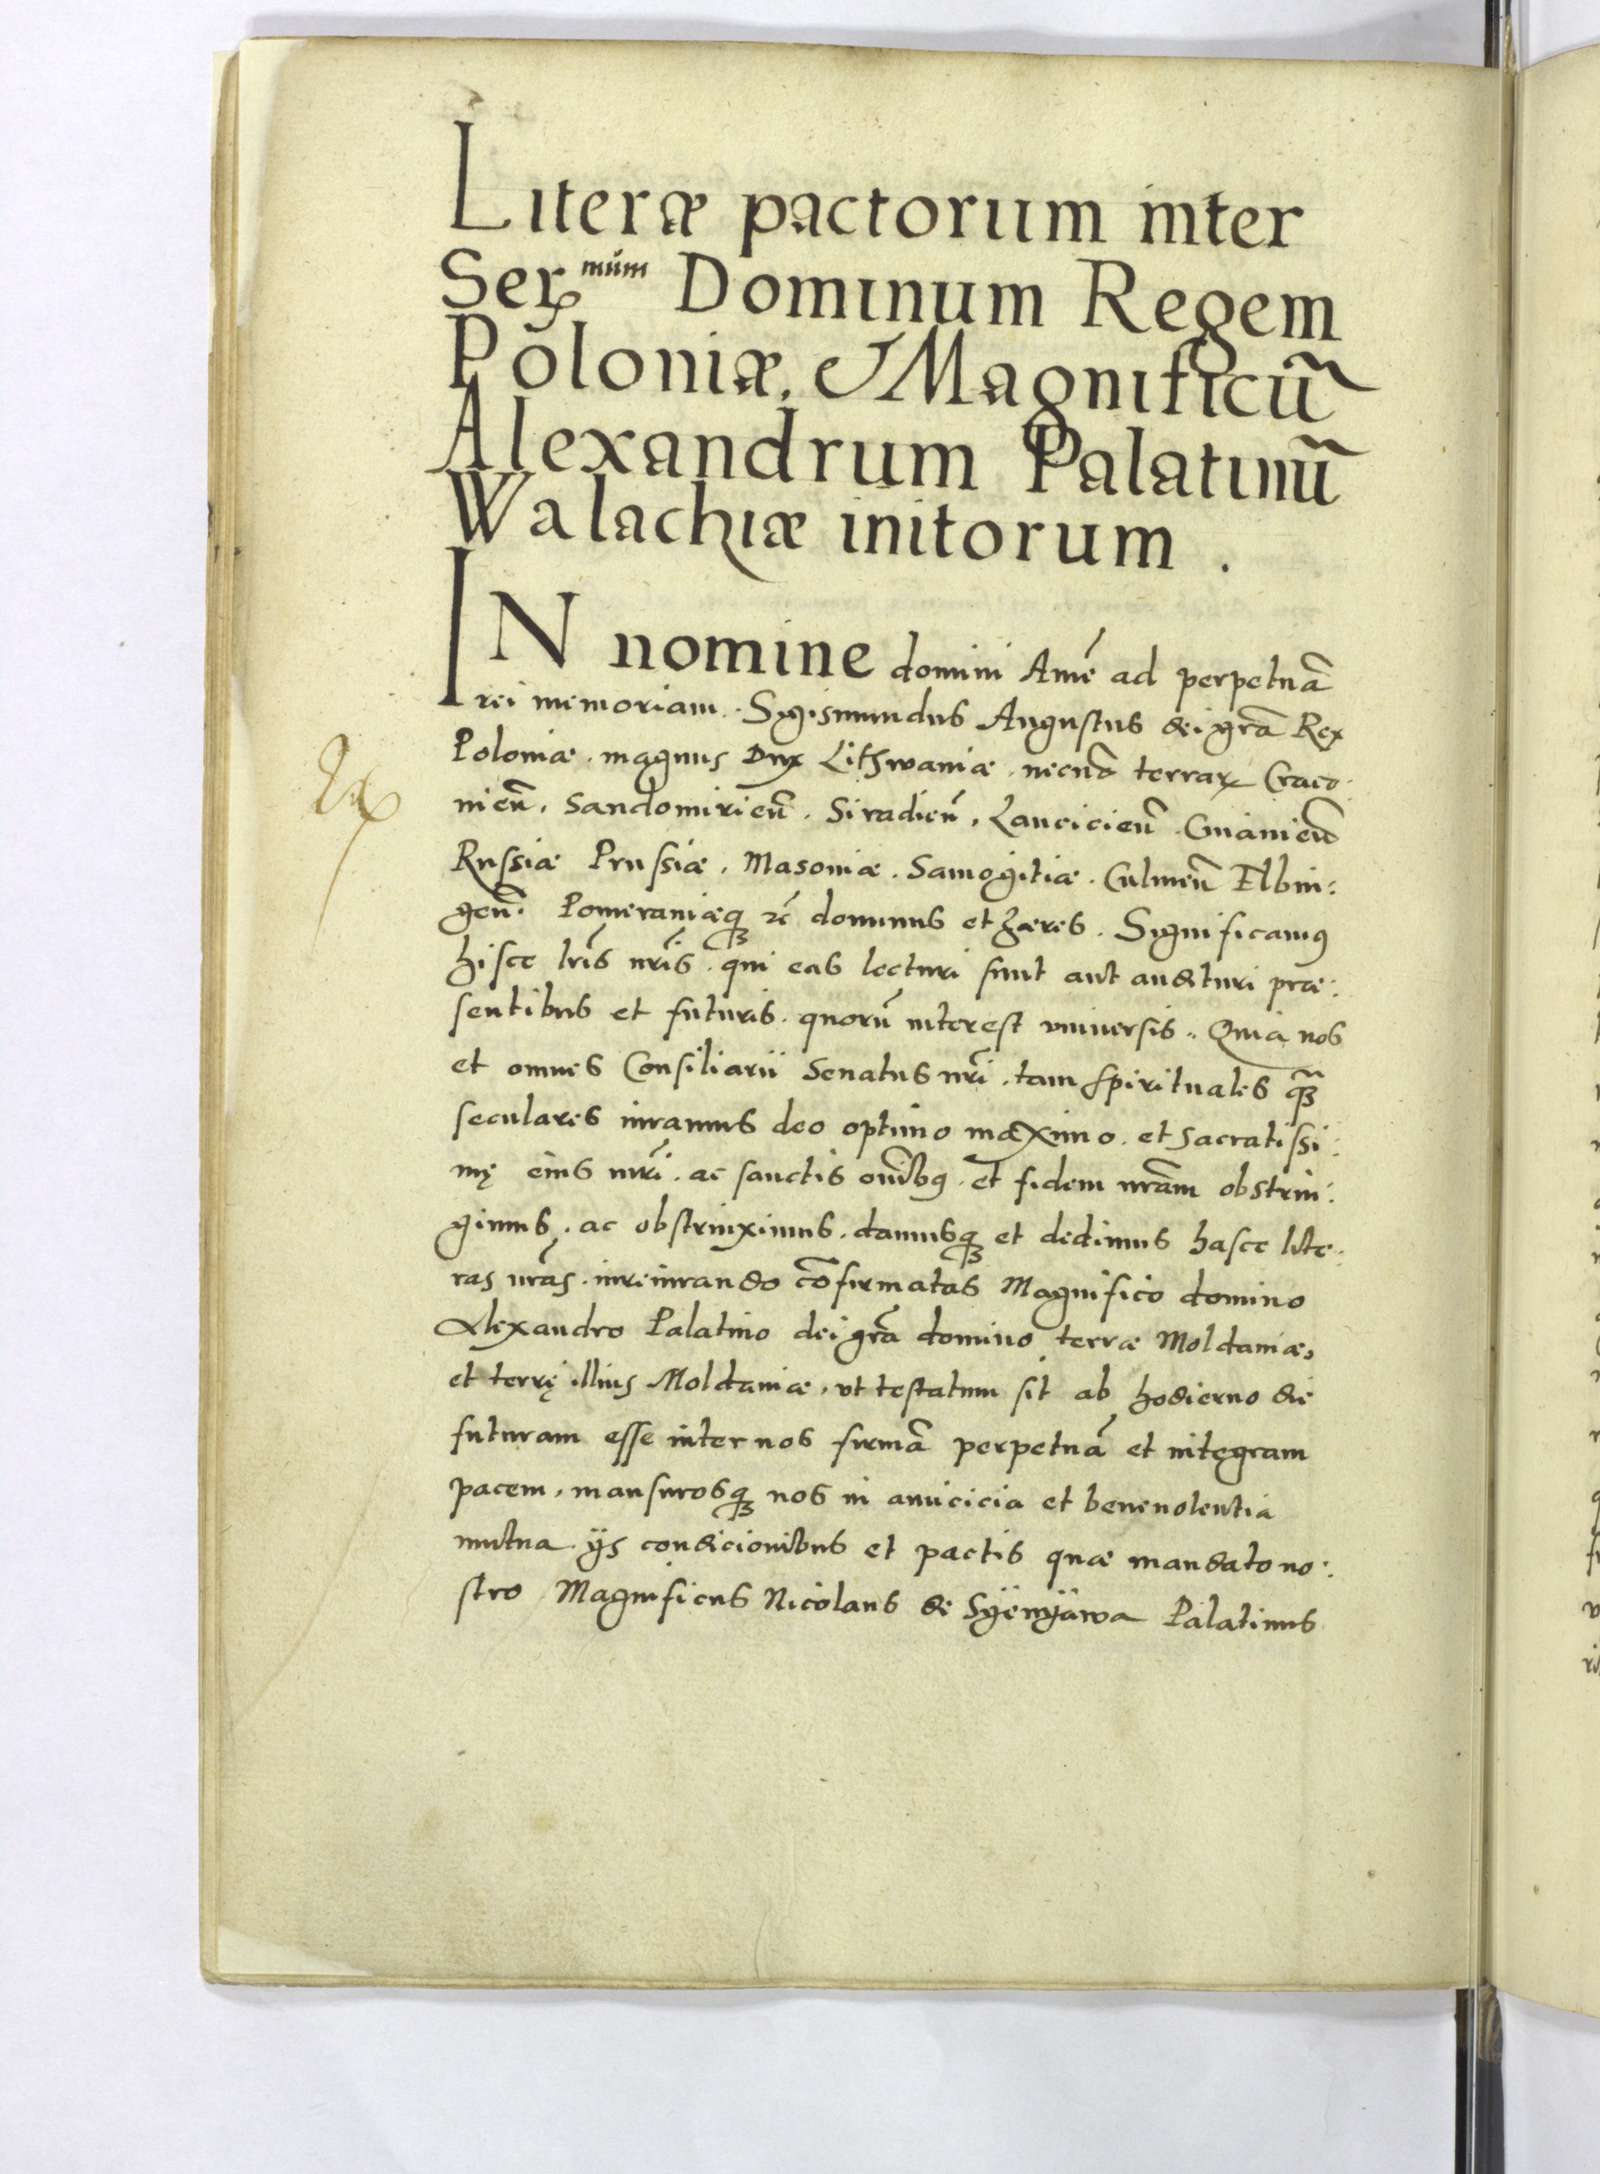 Literæ pactorum inter
Ser mum Dominum Regem
Poloniæ, & Magnificũ
Alexandrum Palatinũ
Walachiæ initorum.
IN nomine domini Amẽ ad perpetuã
rei memoriam. Sigismundus Augustus dei grã Rex
Poloniæ. magnus Dux Lithwaniæ. necnõ terrarꝝ Craco-
nieñ, Sandomirieñ. Siradieñ, Lancicieñ. Cuiavieñ
Russiæ Prussiæ. Masoviæ. Samogitiæ. Culmeñ Elbin:
geñ. Pomeraniæqꝫ ꝛc̃ dominus et hæres. Significamus
hisce lr̃is nr̃is. qui eas lecturi sunt aut audituri præ:
sentibus et futuris. quorũ interest vniuersis. Quia nos
et omnes Consiliarii Senatus nr̃i. tam spirituales qꝫ̃
seculares iuramus deo optimo maximo. et Sacratissi:
mę eius mr̃i. ac sanctis om̃ibus. et fidem nr̃am obstrin:
gimus, ac obstrinximus. damusqꝫ et dedimus hasce lite:
ras nr̃as. iureiurando cõfirmatas Magnifico domino
Alexandro Palatino dei grã domino terræ Moldaviæ,
et terrę illius Moldaviæ, vt testatum sit ab hodierno die
futuram esse inter nos firmã perpetuã et integram
pacem, mansurosqꝫ nos in amicicia et beneuolentia
mutua. ÿs condicionibus et pactis quæ mandato no:
stro Magnificus Nicolaus de Syenyawa Palatinus